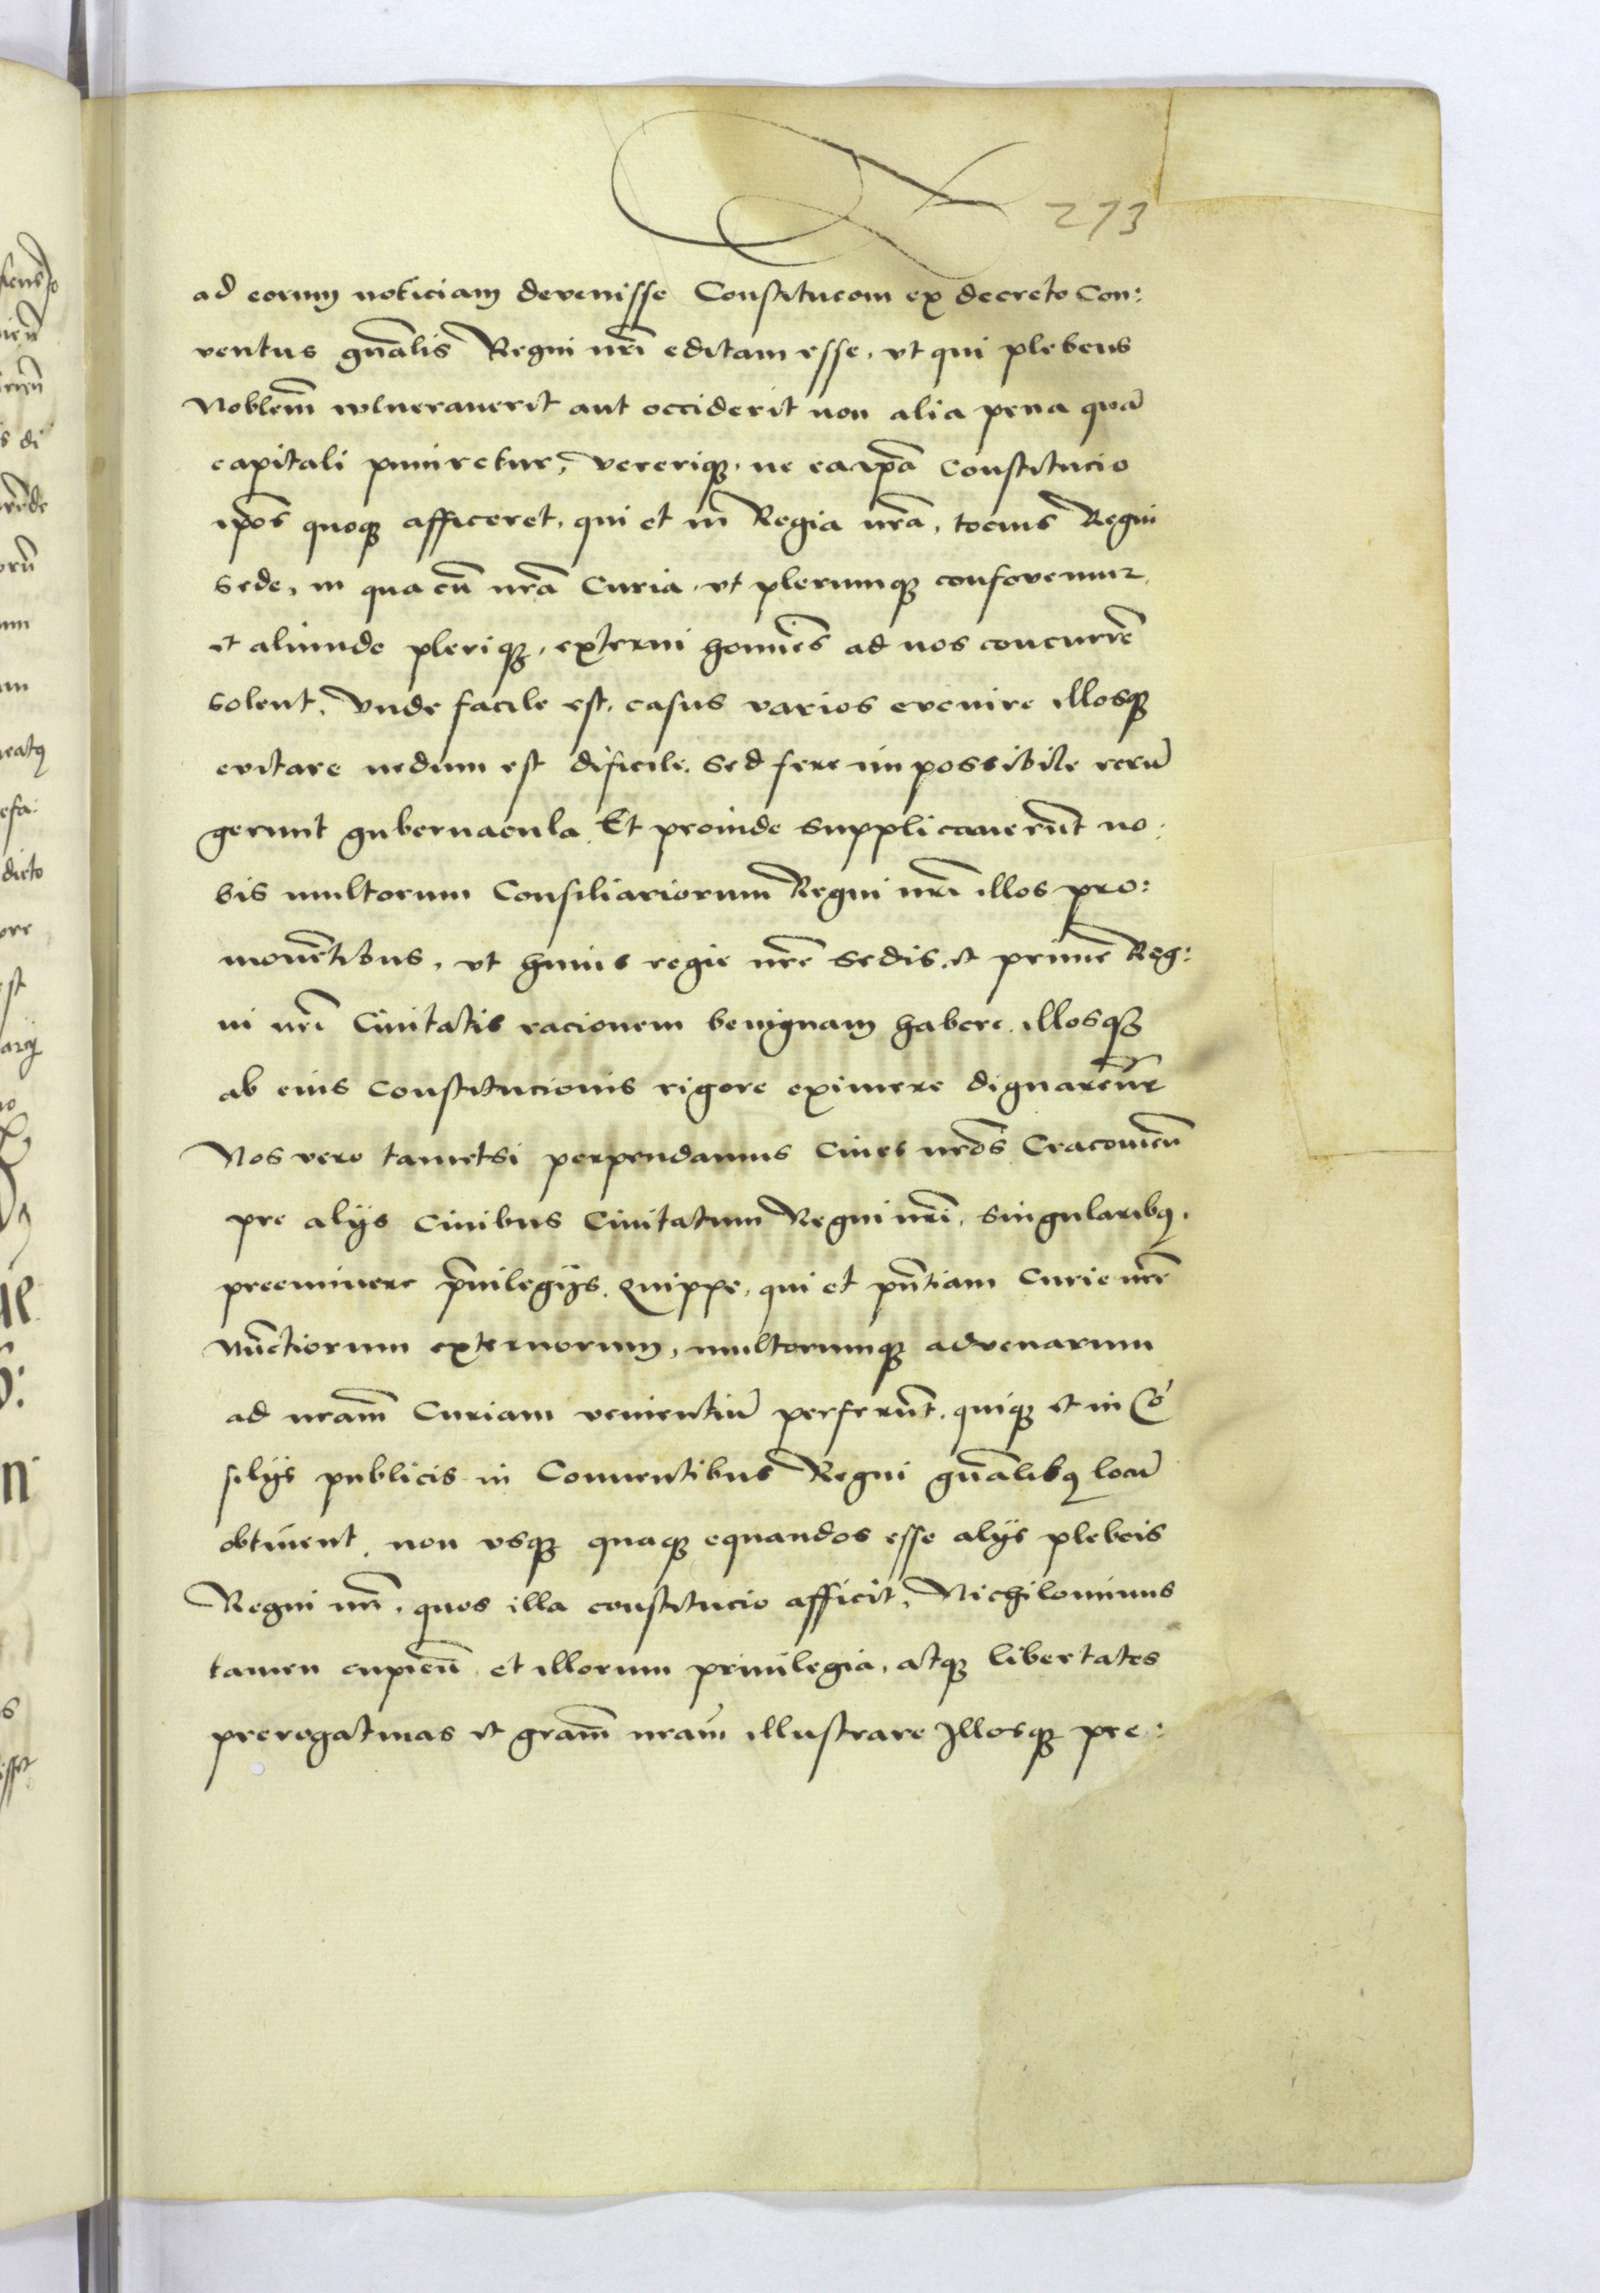 273
ad eorum noticiam devenisse Constitucom ex decreto Con:
ventus gnalis Regni nri editam esse, vt qui plebeus
Noblem wlnerauerit aut occiderit non alia pena qua
capitali puniretur, vererique, ne ea ipa Constitucio
ipos quoque afficeret, qui et in Regia nra, tocius Regni
sede, in qua cu nra Curia, vt plerumque confovemur,
et aliunde plerique, externi homies ad nos concurre
solent, Vnde facile est, casus varios evenire illosque
evitare nedum est dificile, sed fere impossibile reru
gerunt gubernacula, Et proinde supplicauerunt no:
bis multorum Consiliariorum Regni nri illos pro:
mouetibus, vt huius regie nre sedis, et prime Reg:
ni nri Ciuitatis racionem benignam habere, illosque
ab eius Constitucionis rigore eximere dignaremr
Nos vero tametsi perpendamus Ciues nros Cracouien
pre alijs Ciuibus Ciuitatum Regni nri, singularibus,
preeminere priuilegijs, Quippe, qui et pntiam Curie nre
Nuctiorum externorum, multorumque advenarum
ad nram Curiam venientiu perferunt, quique et in Co
silijs publicis in Conuentibus Regni gnalibus locu
obtinent, non vsque quaque equandos esse alijs plebeis
Regni nri, quos illa constitucio afficit, Nichilominus
tamen cupien, et illorum priuilegia, atque libertates
prerogatiuas et gram nram illustrare Illosque pre: